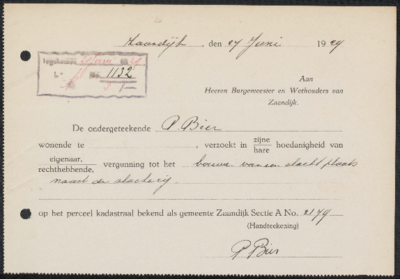 Zaandijk, den 27 Juni 1929
Ingekomen
No. 1132
Aan
Heeren Burgemeester en Wethouders van
Zaandijk.
De ondergeteekende P Bier
wonende te , verzoekt in zijne
hare hoedanigheid van
eigenaar,
rechthebbende, vergunning tot het bouwe van een slacht plaats
naast de slachterij
op het perceel kadastraal bekend als gemeente Zaandijk Sectie A No. 2179
(Handteekening)
P Bier